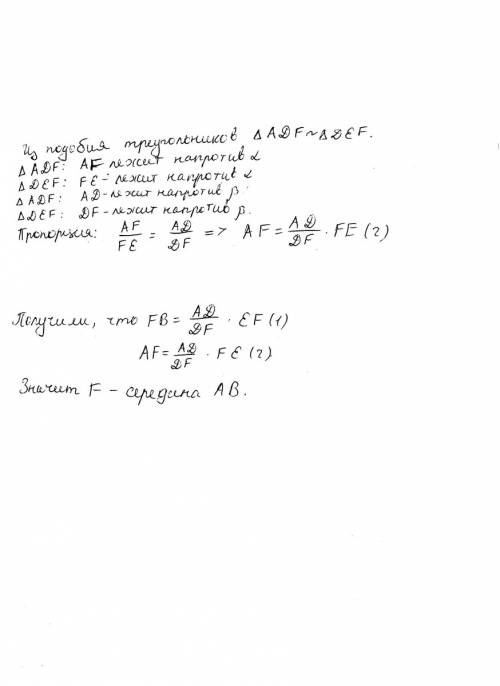 Из подобия треугольников △ADF~△DEF.
△ADF: AF лежит напротив α
△DEF: FE - лежит напротив α
△ADF: AD - лежит напротив β
△DEF: DF - лежит напротив β.
Пропорция: AF/FE = AD/DF => AF = AD/DF · FE (2)
Получили, что FB = AD/DF · EF (1)
AF = AD/DF · FE (2)
Значит F - середина AB.